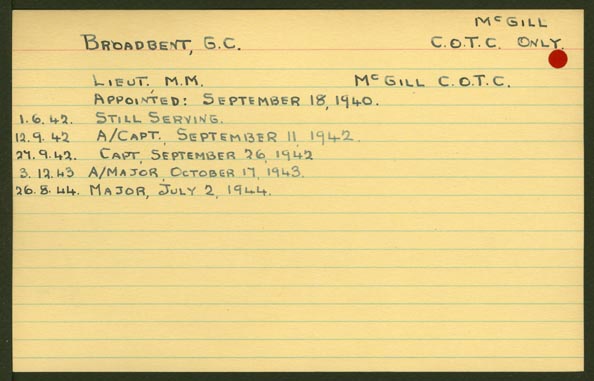 McGILL
BROADBENT, G.C. C.O.T.C. ONLY.
LIEUT. M.M. McGILL C.O.T.C.
APPOINTED: SEPTEMBER 18, 1940.
1.6.42. STILL SERVING.
12.9.42 A/CAPT., SEPTEMBER 11, 1942.
27.9.42. CAPT, SEPTEMBER 26, 1942
3.12.43 A/MAJOR, OCTOBER 17, 1943.
26.8.44. MAJOR, JULY 2, 1944.